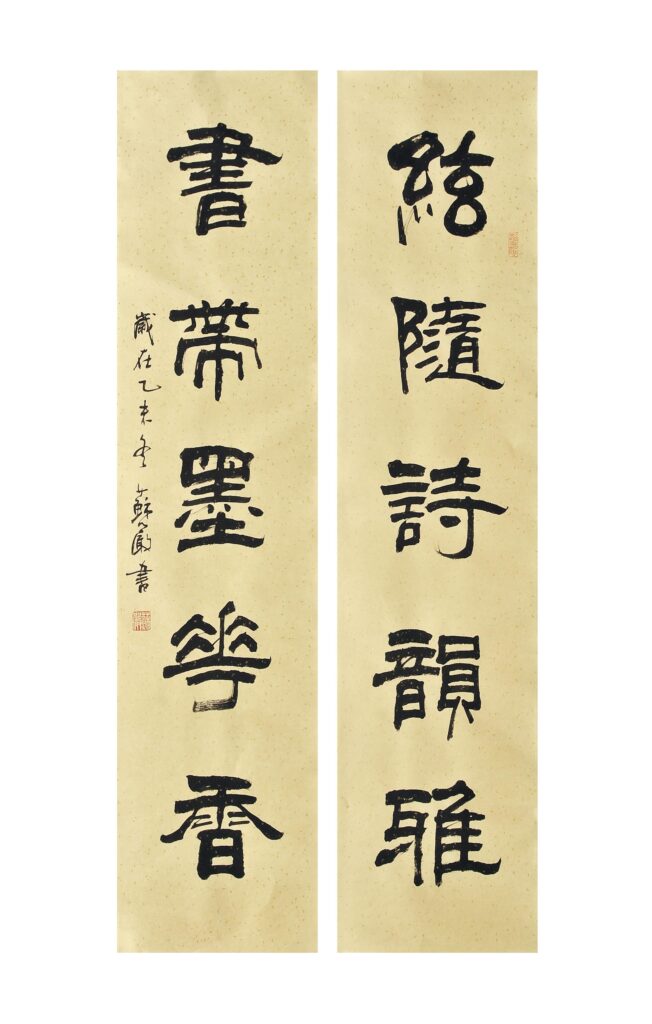 絃隨詩韻雅
書帶墨華香
歲在乙未冬 蘇 書